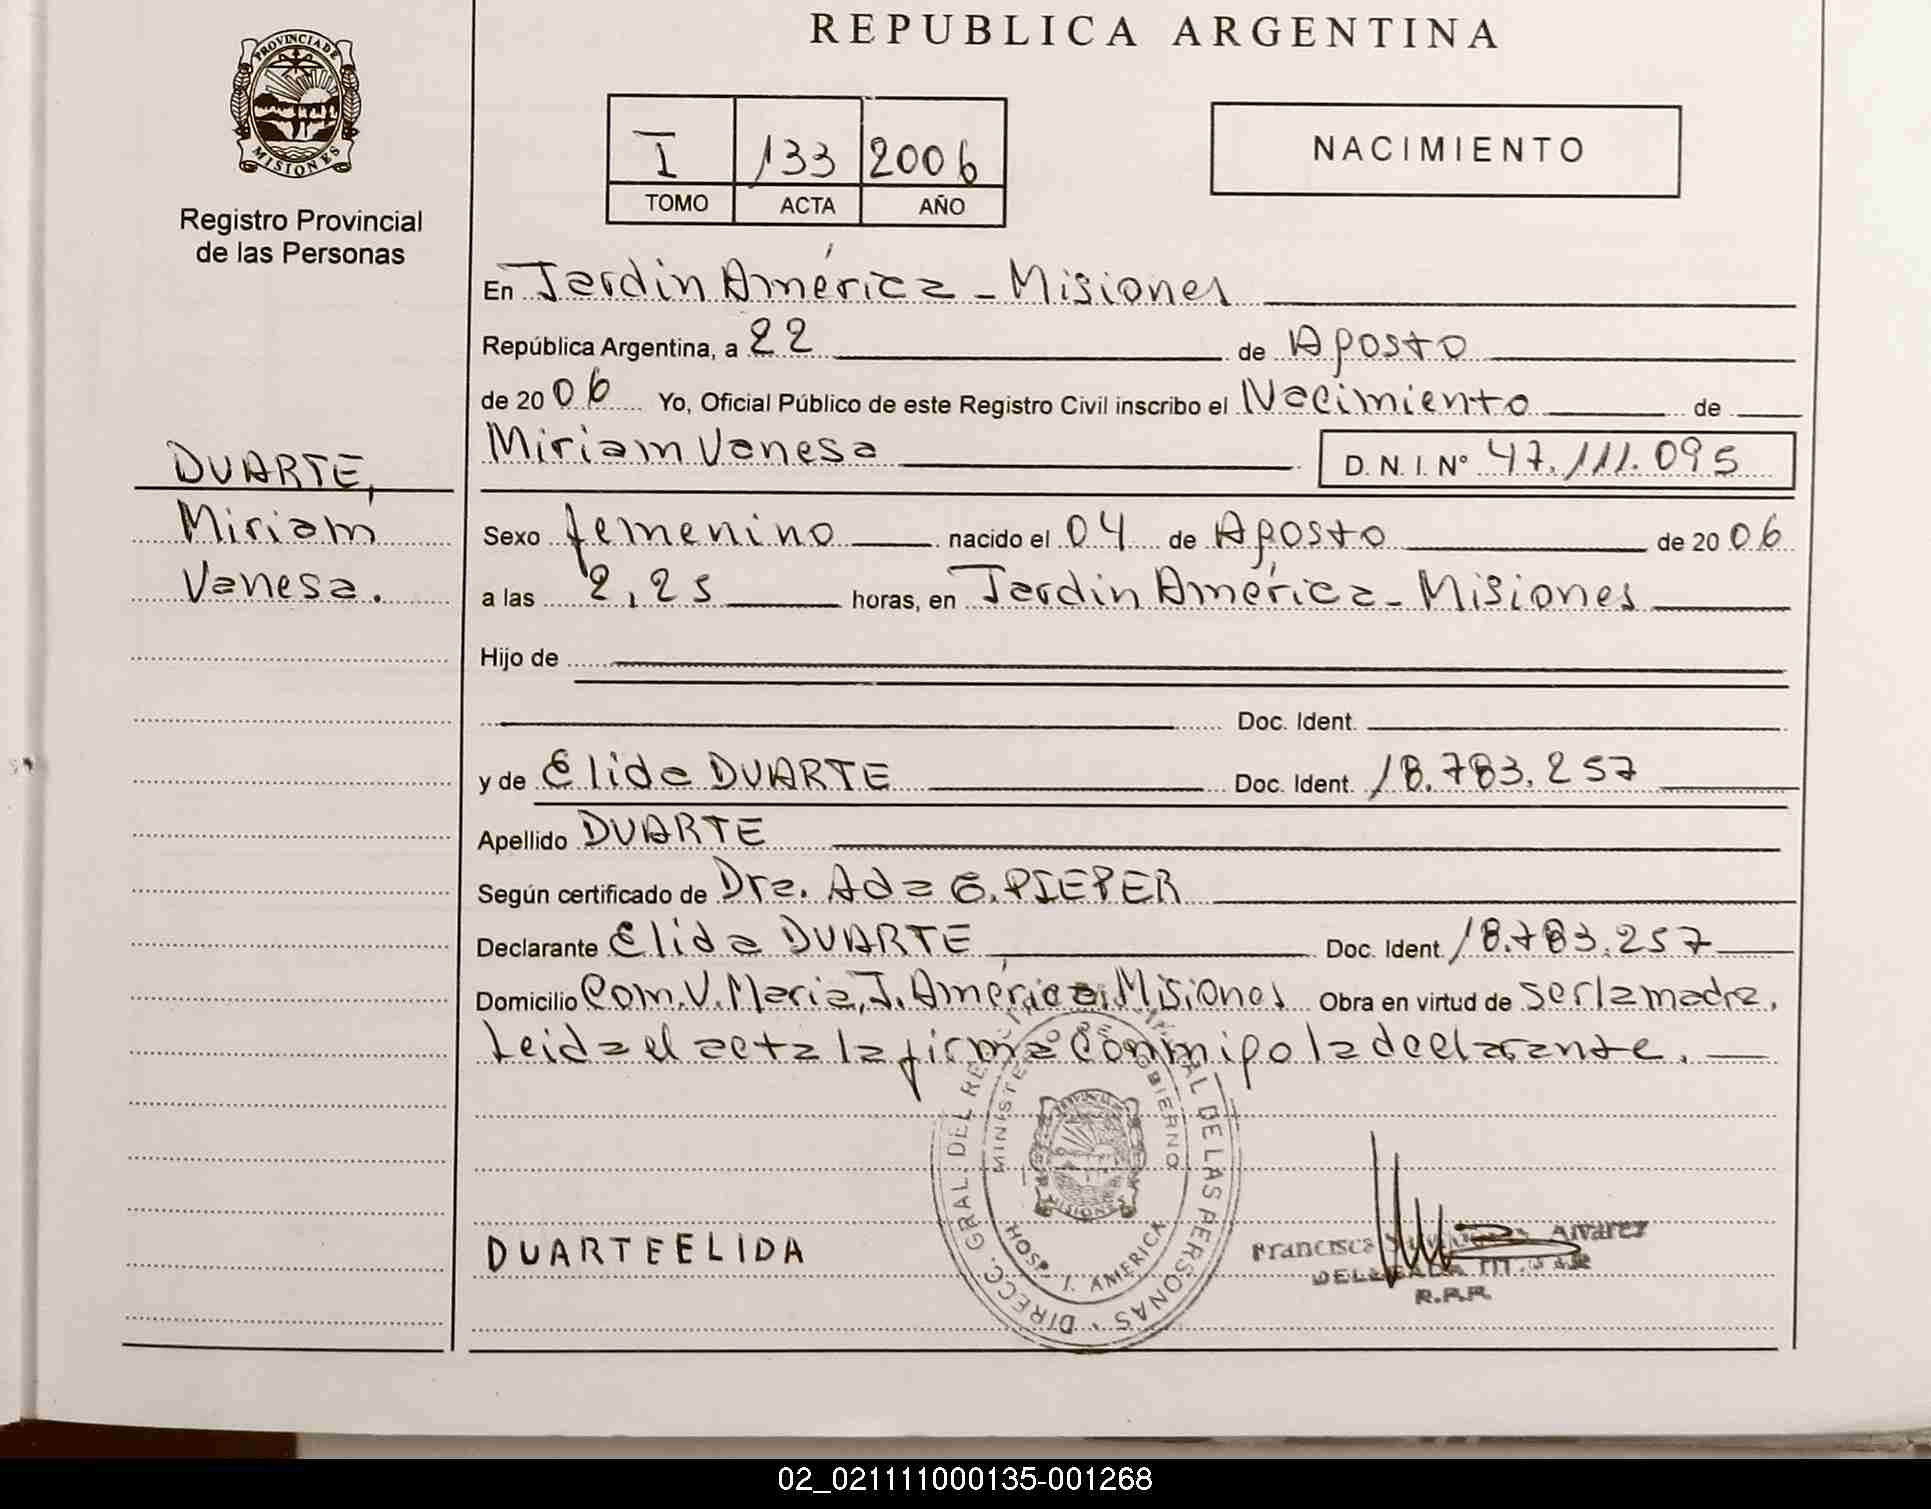 REPUBLICA ARGENTINA
PROVINCIA DE
MISIONES
Registro Provincial
de las Personas
I 133 2006
TOMO ACTA AÑO
NACIMIENTO
En Jardin América - Misiones
República Argentina, a 22 de Agosto
de 2006 Yo, Oficial Público de este Registro Civil inscribo el Nacimiento de
Miriam Vanesa D. N. I. N° 47.111.095
DUARTE,
Miriam
Vanesa.
Sexo femenino nacido el 04 de Agosto de 2006
a las 2,25 horas, en Jardin América - Misiones
Hijo de
Doc. Ident.
y de Elida DUARTE Doc. Ident. 18.783.257
Apellido DUARTE
Según certificado de Dra. Ada E. PIEPER
Declarante Elida DUARTE Doc. Ident. 18.783.257
Domicilio Com. V. Maria, J. América, Misiones Obra en virtud de ser la madre.
Leida el acta la firma conmigo la declarante.
DIRECC. GRAL. DEL DE LAS PERSONAS
MINISTERIO DE GOBIERNO
MISIONES
HOSP. J. AMERICA
DUARTE ELIDA
Francisca Alvarez
DELEGADA TITULAR
R.P.P.
02_021111000135-001268